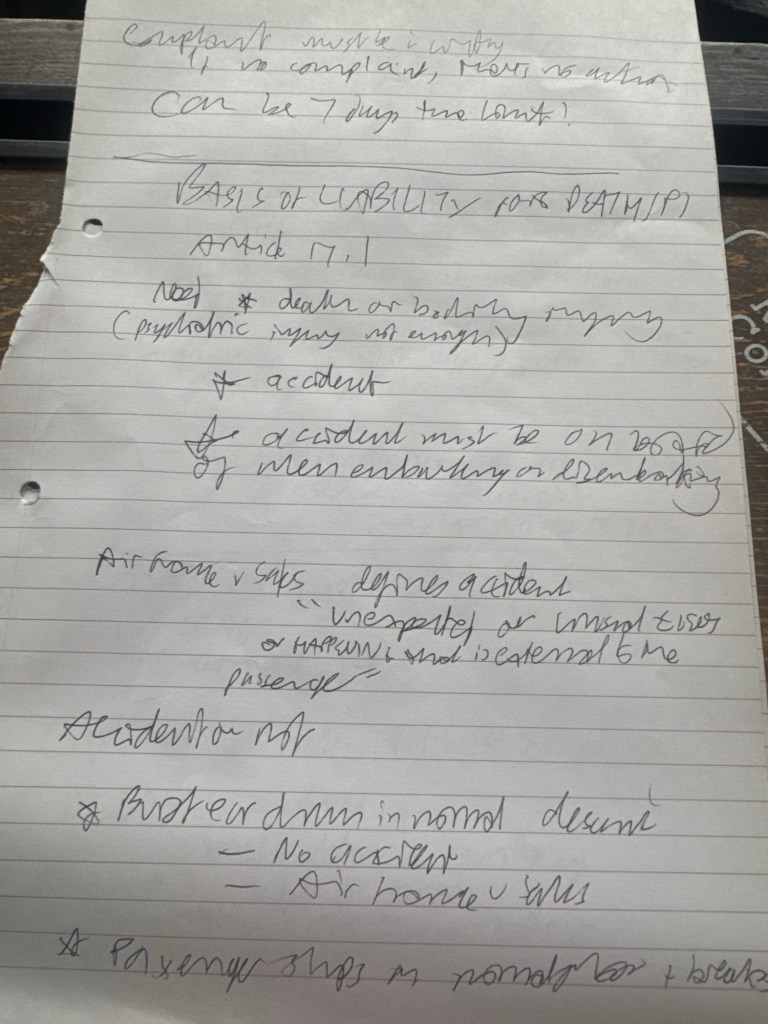 Complaint must be in writing
If no complaint, there's no action
Can be 7 days time limit!
BASIS OF LIABILITY FOR DEATH/PI
Article 17.1
Need * death or bodily injury
(psychiatric injury not enough)
* accident
* accident must be on board
or when embarking or disembarking
Air France v Saks defines accident
"unexpected or unusual event
or HAPPENING that is external to the
passenger"
Accident or not
* Burst ear drum in normal descent
- No accident
- Air France v Saks
* Passenger slips on normal floor + breaks